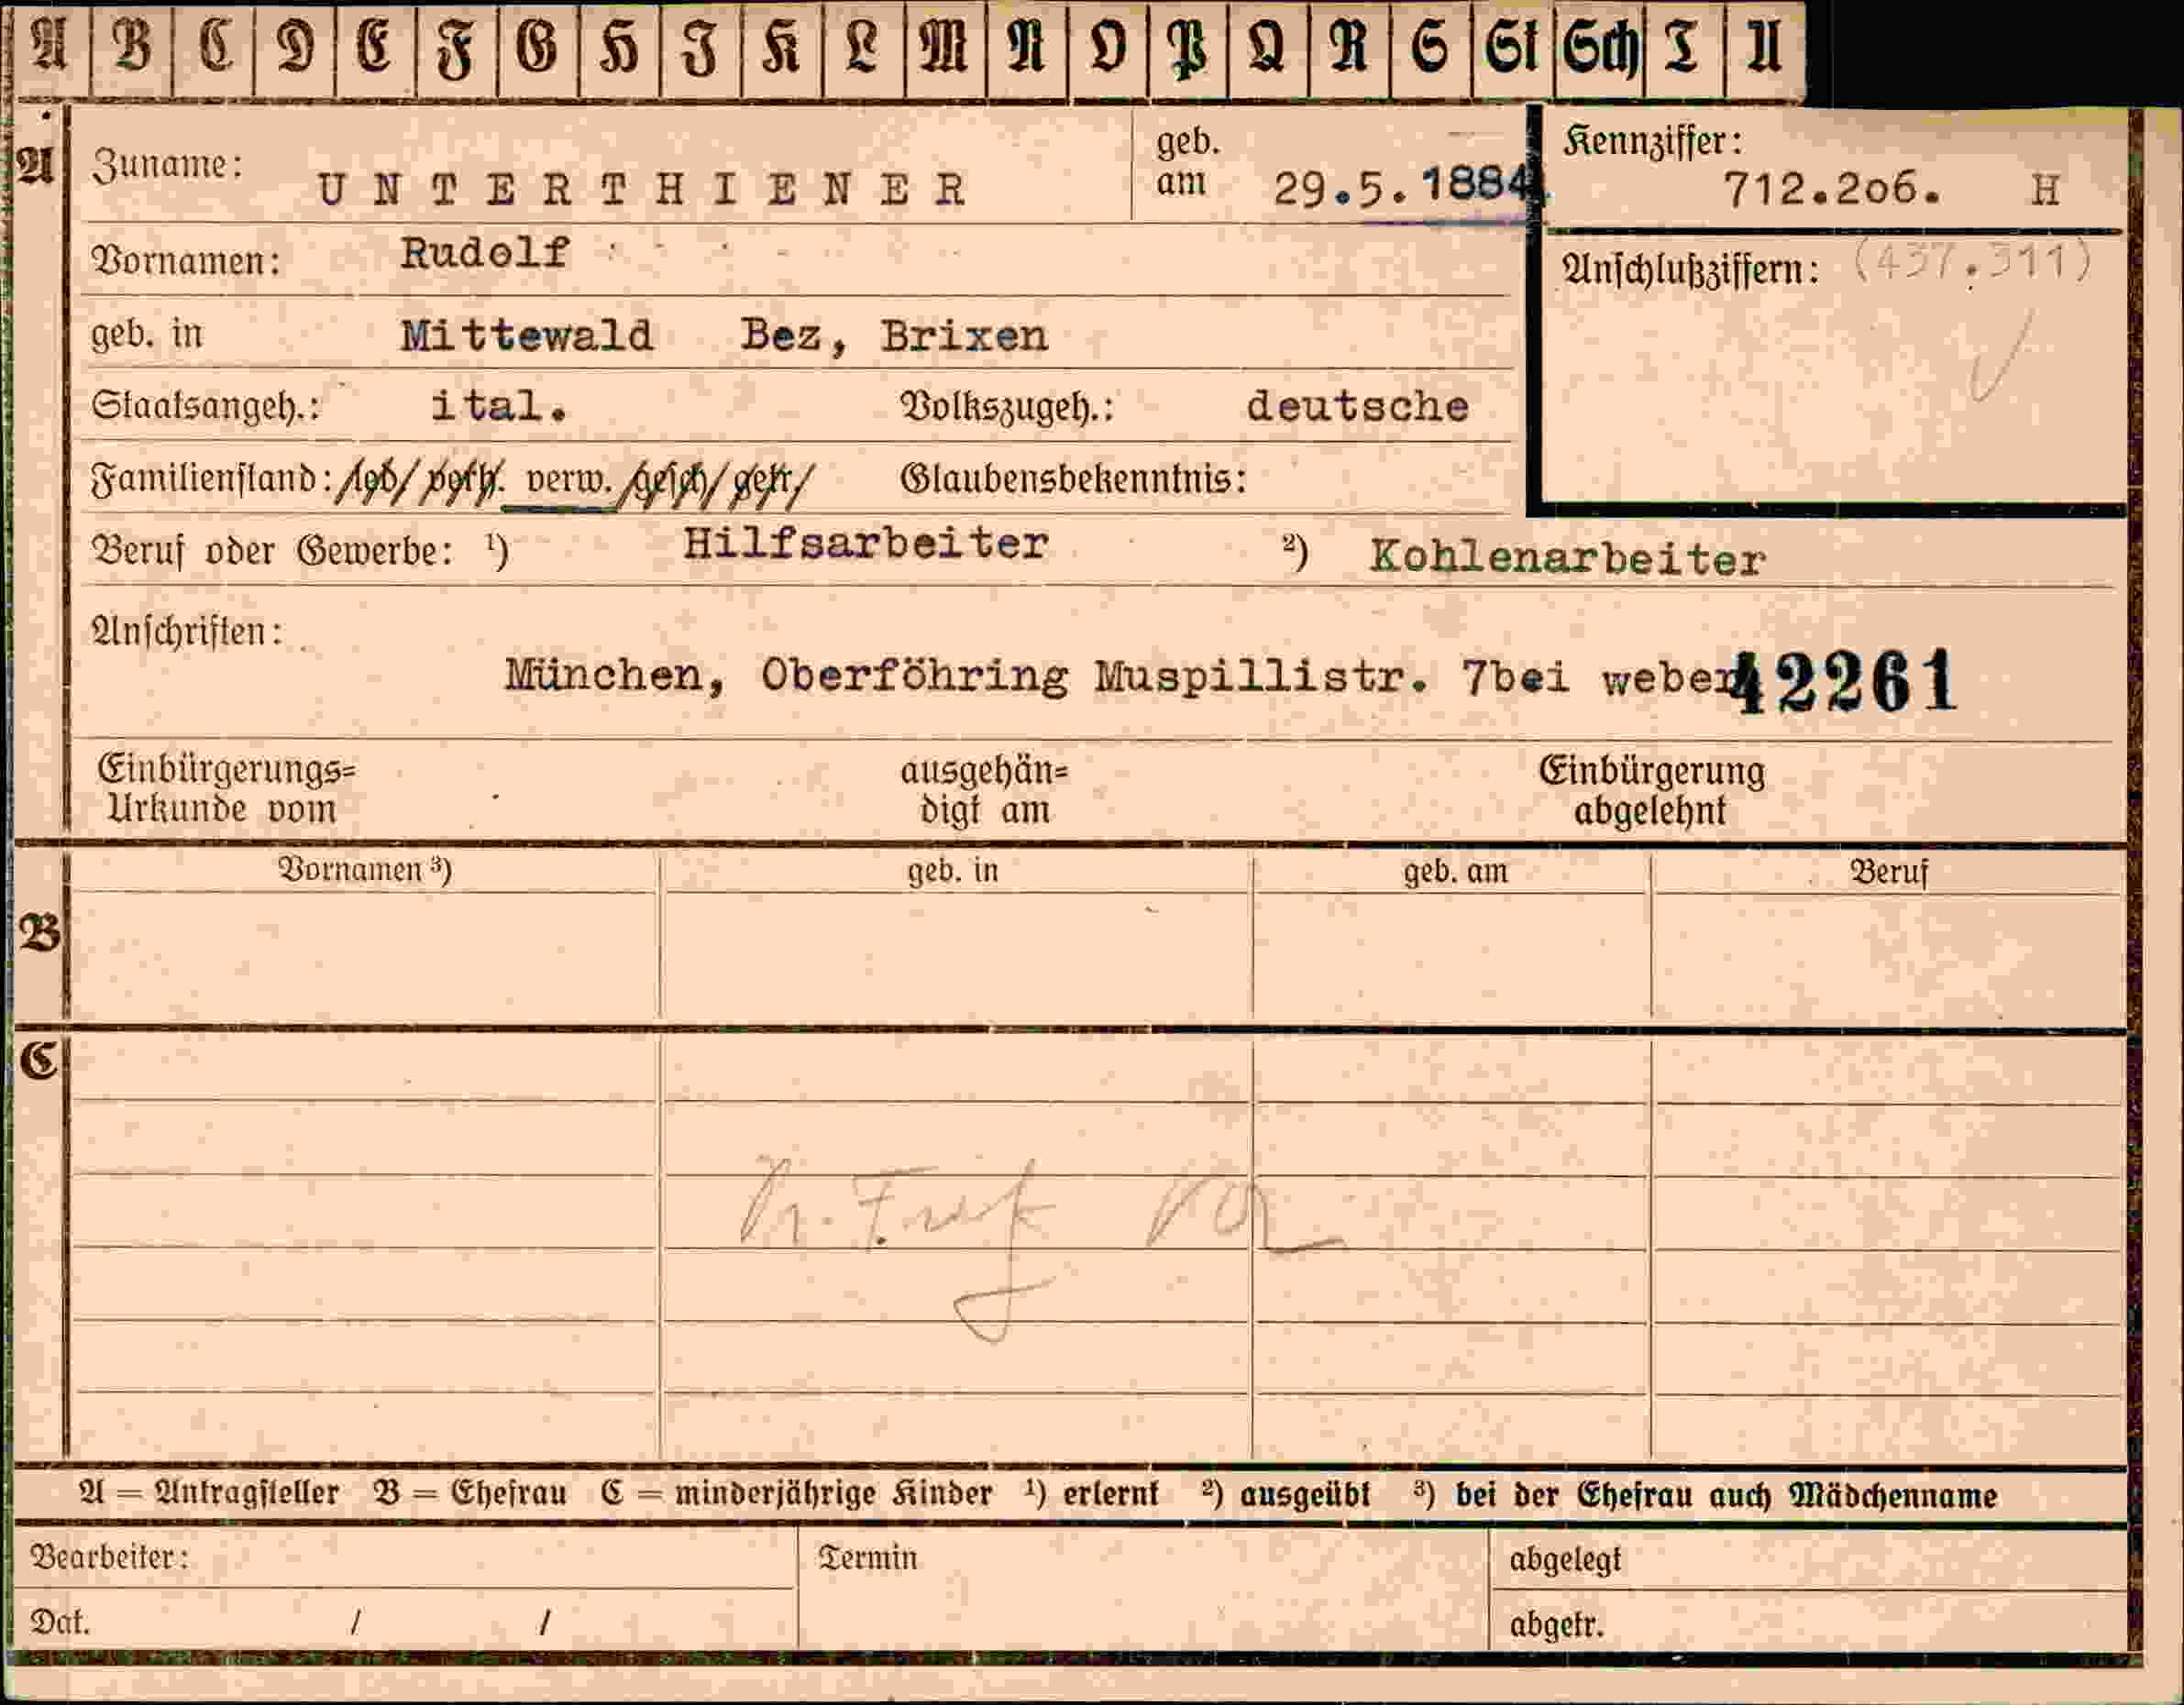 A B C D E F G H J K L M N O P Q R S St Sch T U
A Zuname: UNTERTHIENER geb. am 29.5.1884 Kennziffer: 712.2o6. H
Vornamen: Rudolf Anschlußziffern: (437.311)
geb. in Mittewald Bez, Brixen
Staatsangeh.: ital. Volkszugeh.: deutsche
Familienstand: led/ verh. verw. gesch/ getr/ Glaubensbekenntnis:
Beruf oder Gewerbe: ¹) Hilfsarbeiter ²) Kohlenarbeiter
Anschriften:
München, Oberföhring Muspillistr. 7bei weber 42261
Einbürgerungs= ausgehän= Einbürgerung
Urkunde vom digt am abgelehnt
Vornamen ³) geb. in geb. am Beruf
B
C
A = Antragsteller B = Ehefrau C = minderjährige Kinder ¹) erlernt ²) ausgeübt ³) bei der Ehefrau auch Mädchenname
Bearbeiter: Termin abgelegt
Dat. / / abgetr.